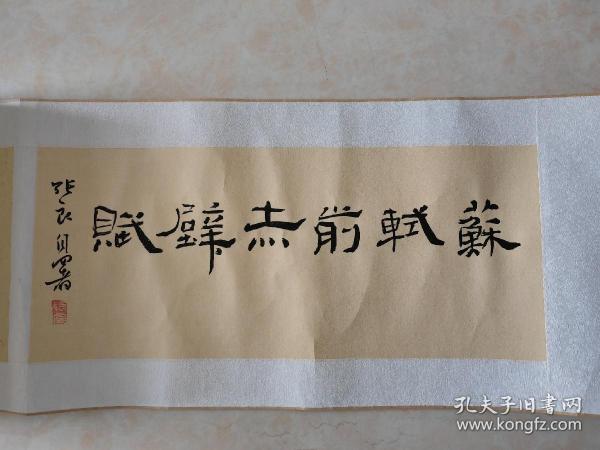 蘇軾前赤壁賦
張良自署
孔夫子旧书网
www.kongfz.com